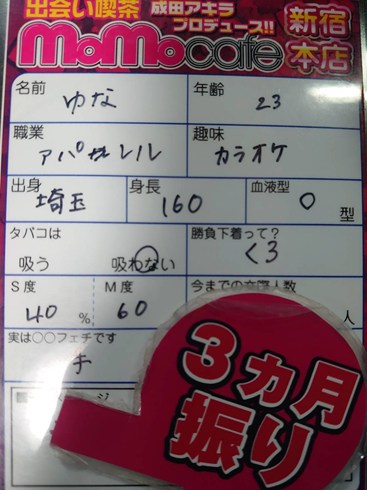 出会い喫茶 成田アキラ プロデュース!! 新宿
MoMocafe 本店
名前 ゆな 年齢 23
職業 アパレル 趣味 カラオケ
出身 埼玉 身長 160 血液型 O 型
タバコは 吸う 吸わない 勝負下着って? くろ
S度 40 % M度 60 今までの交際人数 人
実は○○フェチです 手
3ヵ月
振り